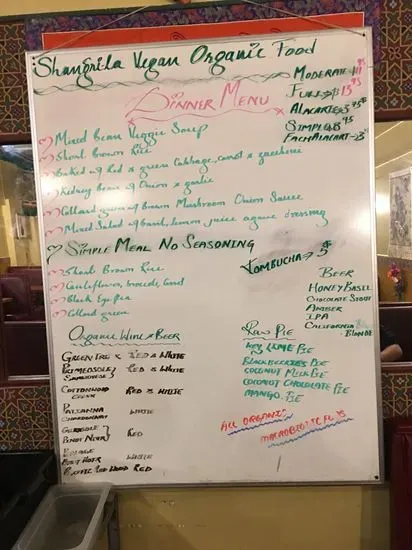 Shangrila Vegan Organic Food
Moderate
Full
Dinner Menu
Alacarte
Simple
Each Alacart
Mixed Bean Veggie Soup
Short Brown Rice
Baked Red & green Cabbage, carrot & zucchini
Kidney Bean Onion & garlic
Collard green Brown Mushroom Onion Sauce
Mixed Salad lemon, juice agave dressing
Simple Meal No Seasoning
Short Brown Rice
Cauliflower, brocoli, carrot
Black Eye Pea
Collard green
Kombucha 5$
Beer
Honey Basil
Chocolate Stout
Amber
IPA
California Blonde
Organic Wine & Beer
Green Tre Red & White
Red & White
Cottonwood Creek Red & White
Paisanna Chardonnay White
Pinot Noir Red
White
Pacific Red Wood Red
Raw Pie
Key Lime Pie
Blackberries Pie
Coconut Milk Pie
Coconut Chocolate Pie
Mango Pie
All Organic